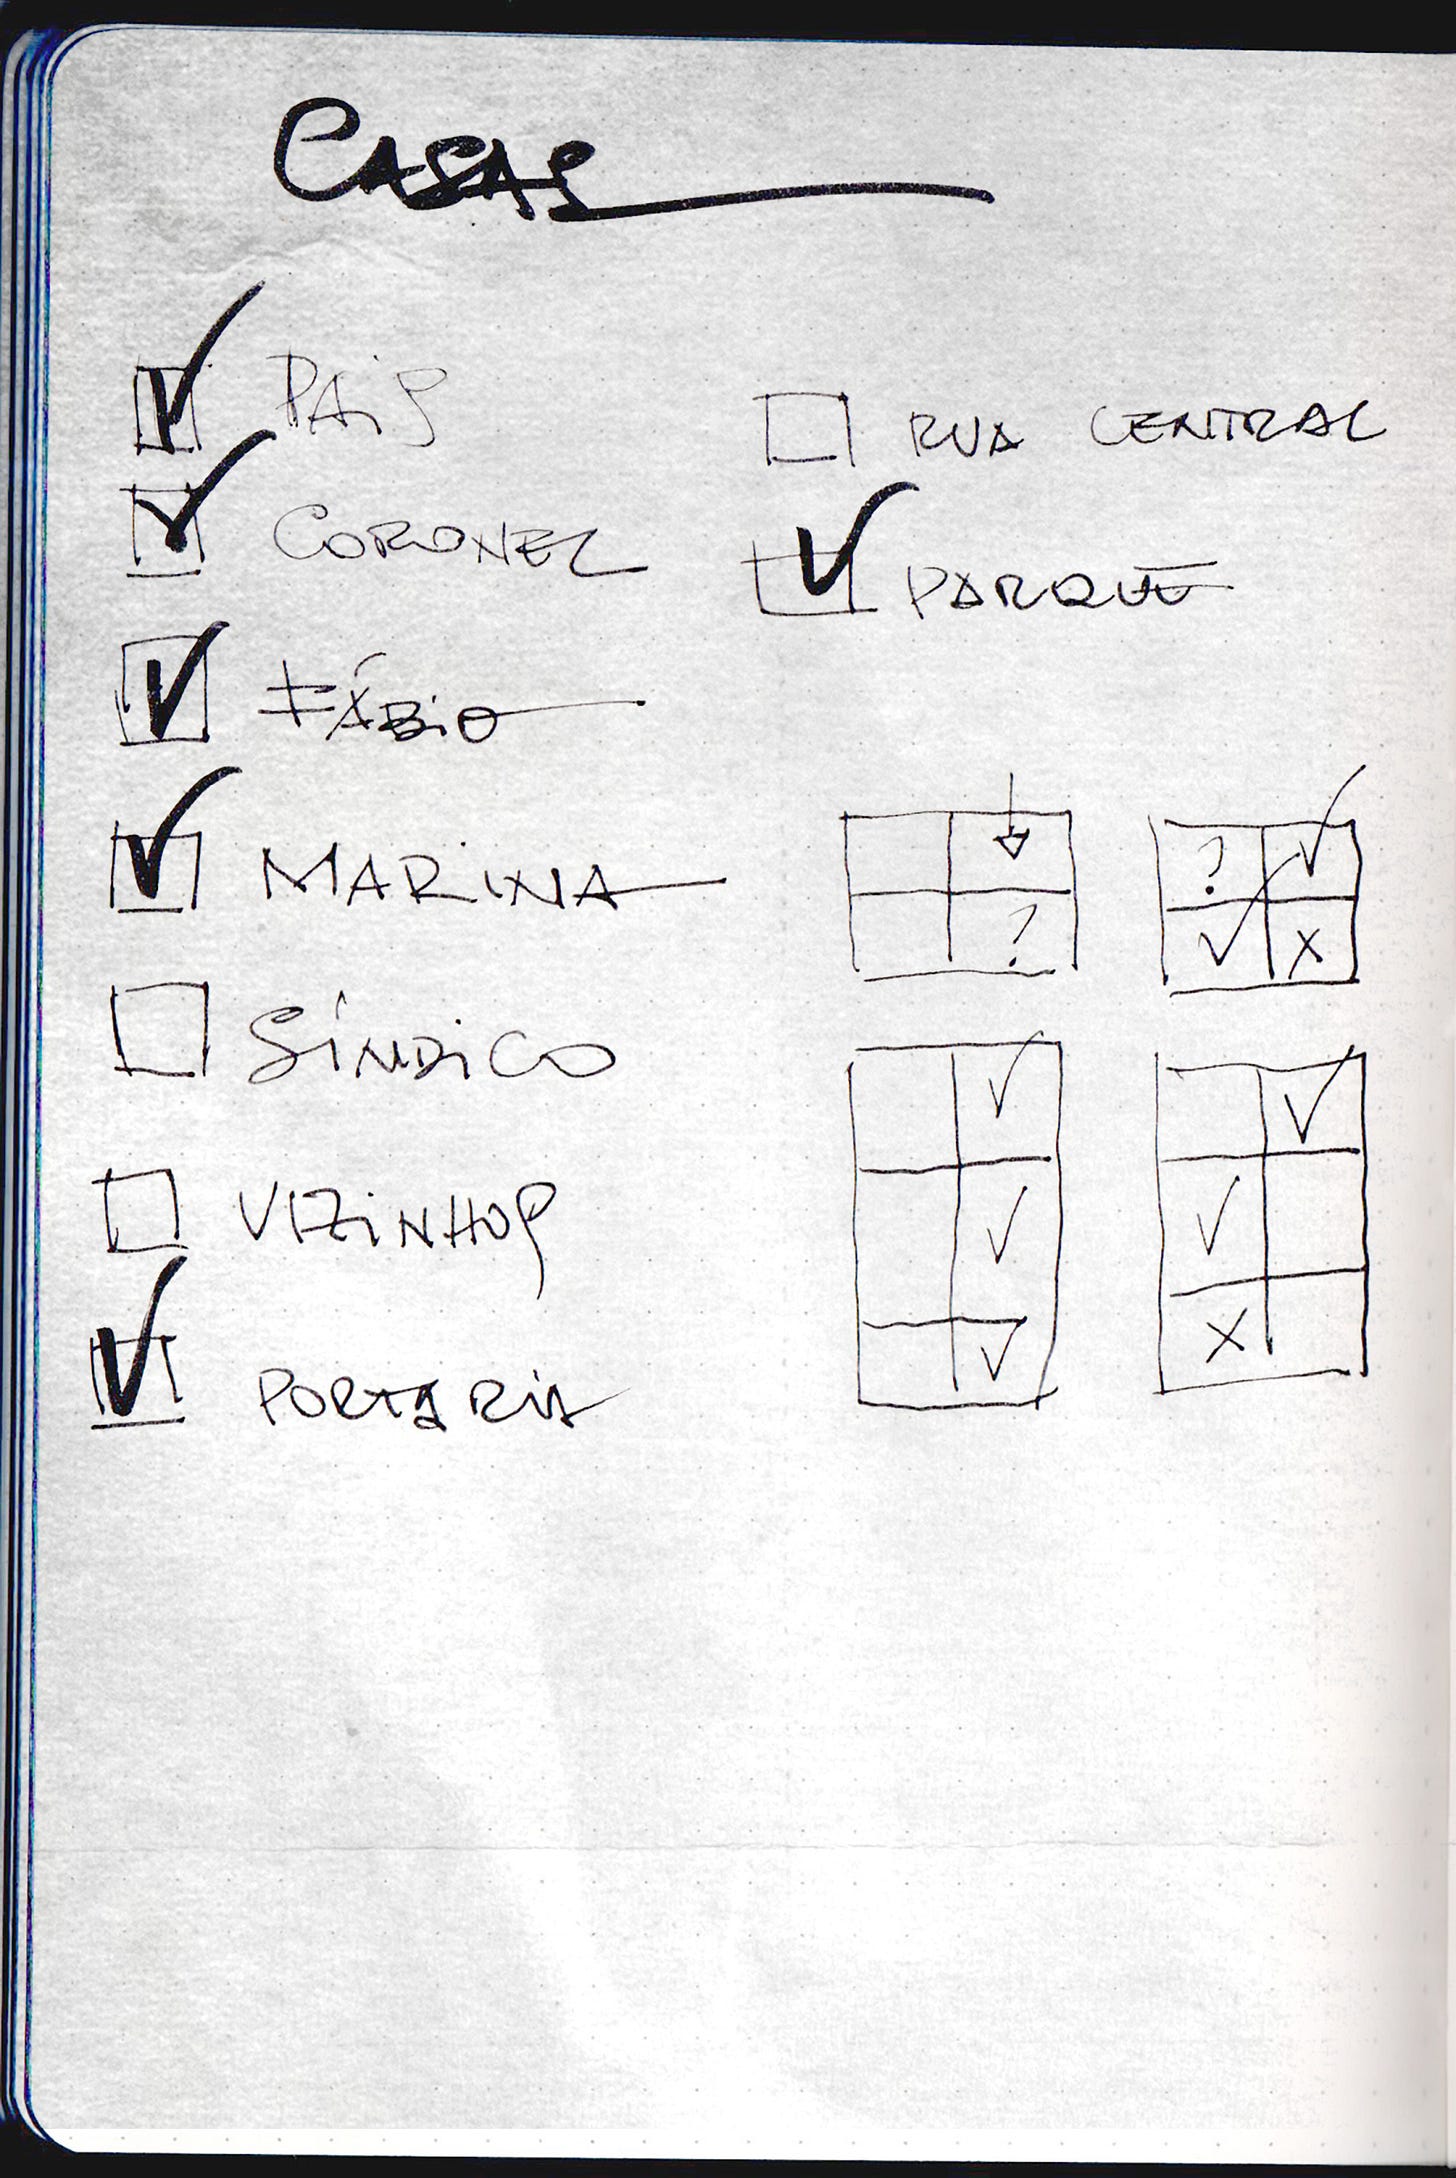 CASAS
PAIS
CORONEL
FÁBIO
MARINA
SÍNDICO
VIZINHOS
PORTARIA
RUA CENTRAL
PARQUE
?
? ✓
✓ X
✓
✓
✓
✓
✓
X